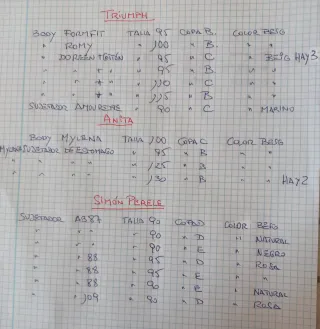 TRIUMPH
BODY FORMFIT TALLA 95 COPA B. COLOR BESG
" ROMY " 100 " B. " "
" DOREEN + COTTON " 95 " C " BEIG HAY 3
" " + " " 95 " B " "
" " + " " 110 " C " "
" " + " " 115 " B " "
SUJETADOR AMOURETTE " 90 " C " MARINO
ANITA
BODY MYLENA TALLA 100 COPA C COLOR BESG
MYLENA SUJETADOR DE ESTOMAGO " 95 " B " "
" " " " 125 " B " "
" " " " 130 " B " " HAY 2
SIMÓN PERELE
SUJETADOR AB87 TALLA 90 COPA D COLOR BERG
" " " " 90 " D " NATURAL
" " " " 90 " E " NEGRO
" " 88 " 95 " D " ROSA
" " 88 " 95 " E " "
" " 88 " 90 " E " NATURAL
" " 109 " 90 " D " ROSA